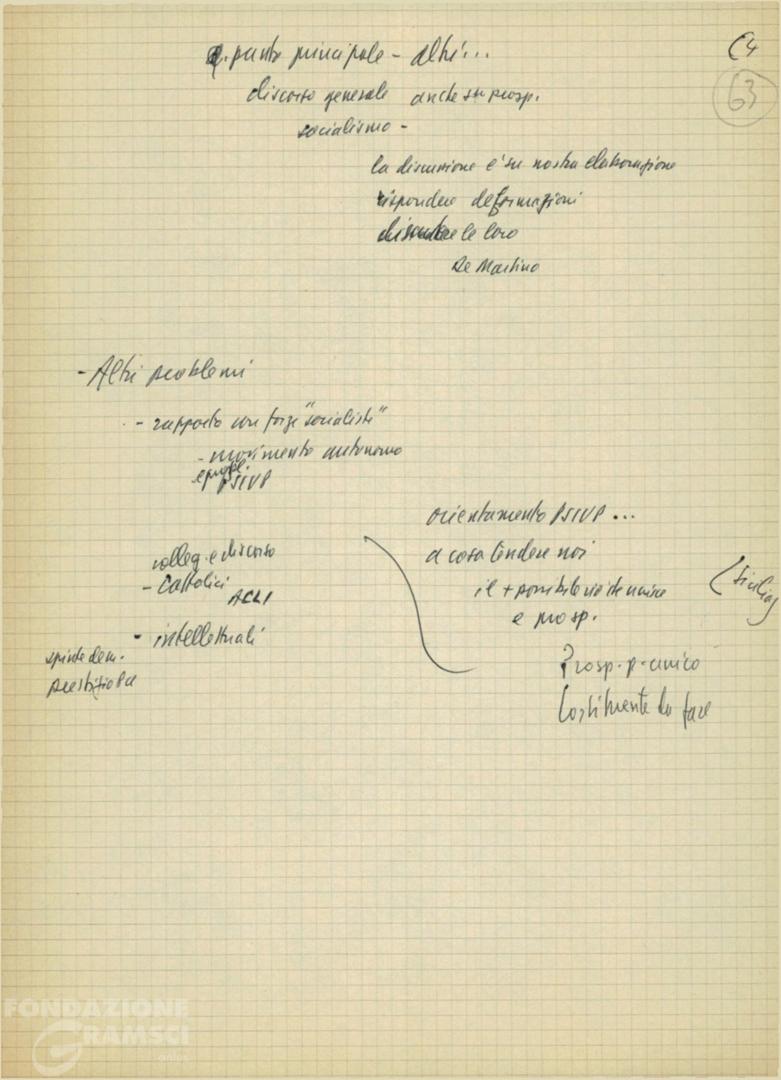 punto principale - altri...
C4
63
discorso generale anche su prosp.
socialismo -
la discussione è su nostra elaborazione
rispondere deformazioni
discutere le loro
De Martino
- Altri problemi
- rapporto con forze "socialiste"
- movimento autonomo
PSIUP
orientamento PSIUP...
a cosa tendere noi
il + possibile
e prosp.
(Sicilia)
colleg. e discorso
- Cattolici
ACLI
- intellettuali
spinte dem.
Prosp. p. unico
da fare
FONDAZIONE
GRAMSCI
onlus